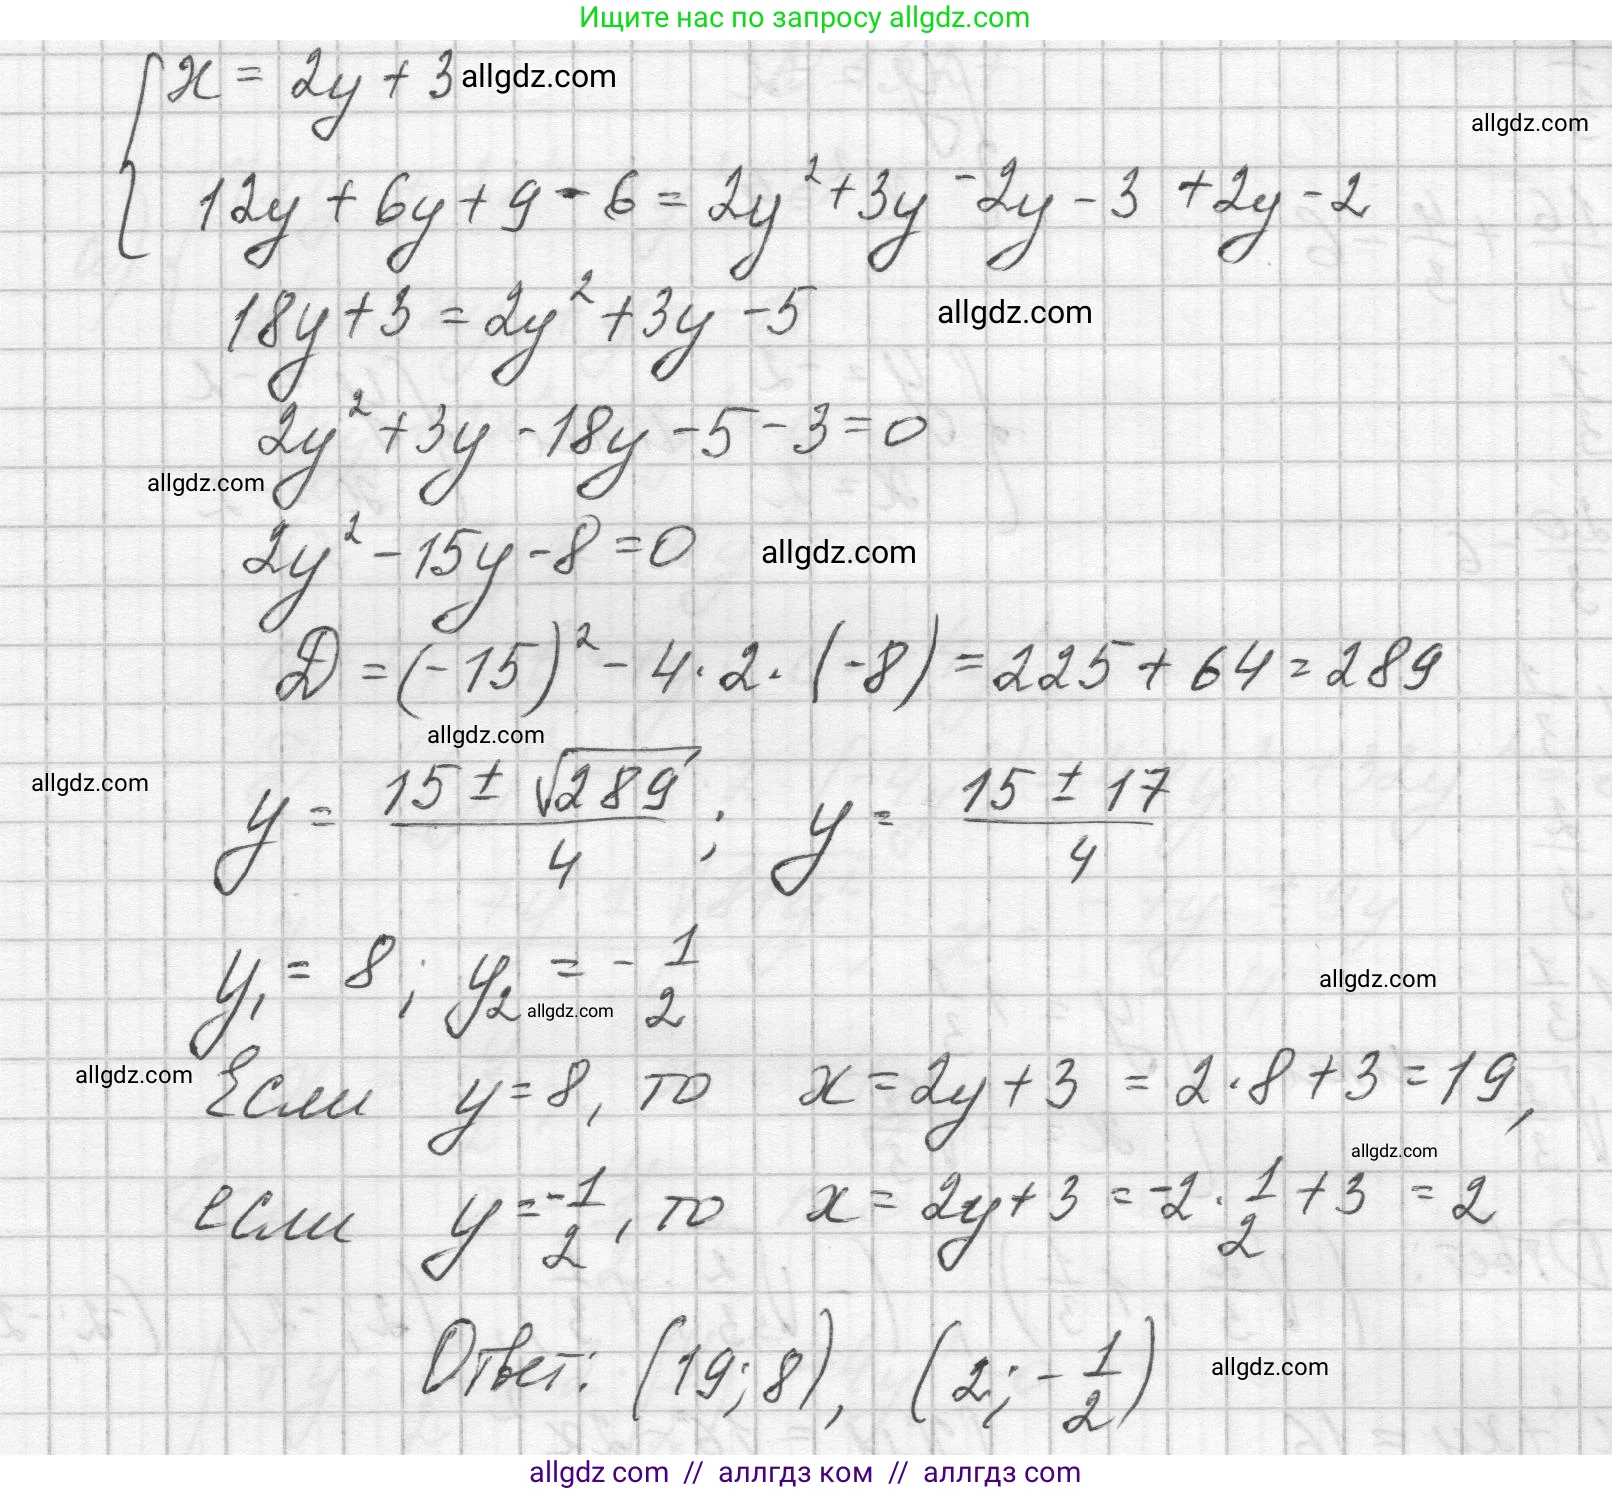 Ищите нас по запросу allgdz.com
x = 2y + 3 allgdz.com
allgdz.com
12y + 6y + 9 - 6 = 2y² + 3y - 2y - 3 + 2y - 2
18y + 3 = 2y² + 3y - 5 allgdz.com
2y² + 3y - 18y - 5 - 3 = 0
allgdz.com
2y² - 15y - 8 = 0 allgdz.com
D = (-15)² - 4 · 2 · (-8) = 225 + 64 = 289
allgdz.com
allgdz.com
y = (15 ± √289)/4 ; y = (15 ± 17)/4
y₁ = 8 ; y₂ = - 1/2
allgdz.com allgdz.com
allgdz.com
Если y = 8, то x = 2y + 3 = 2 · 8 + 3 = 19,
allgdz.com
если y = -1/2, то x = 2y + 3 = -2 · 1/2 + 3 = 2
Ответ: (19; 8), (2; - 1/2) allgdz.com
allgdz com // аллгдз ком // аллгдз com